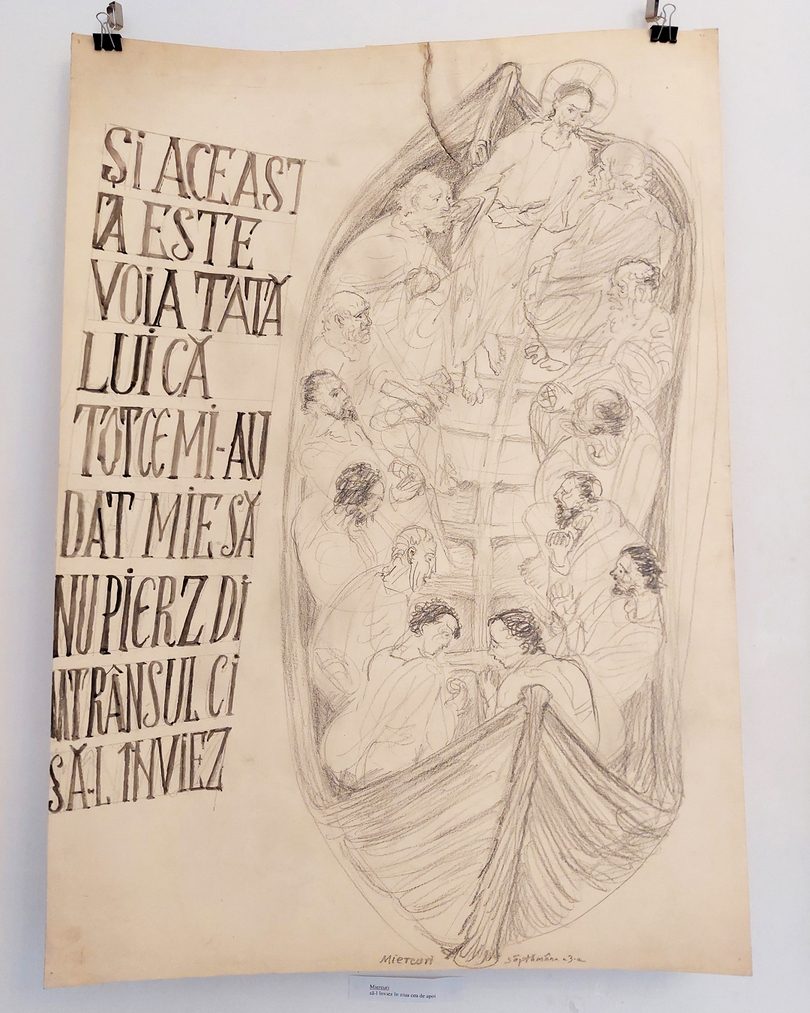 ȘI ACEAS
TA ESTE
VOIA TATĂ
LUI CĂ
TOT CE MI-AU
DAT MIE SĂ
NU PIERZ DI
NTRÂNSUL CI
SĂ-L ÎNVIEZ
Miercuri săptămâna a 3-a
Miercuri
să-l înviez în ziua cea de apoi